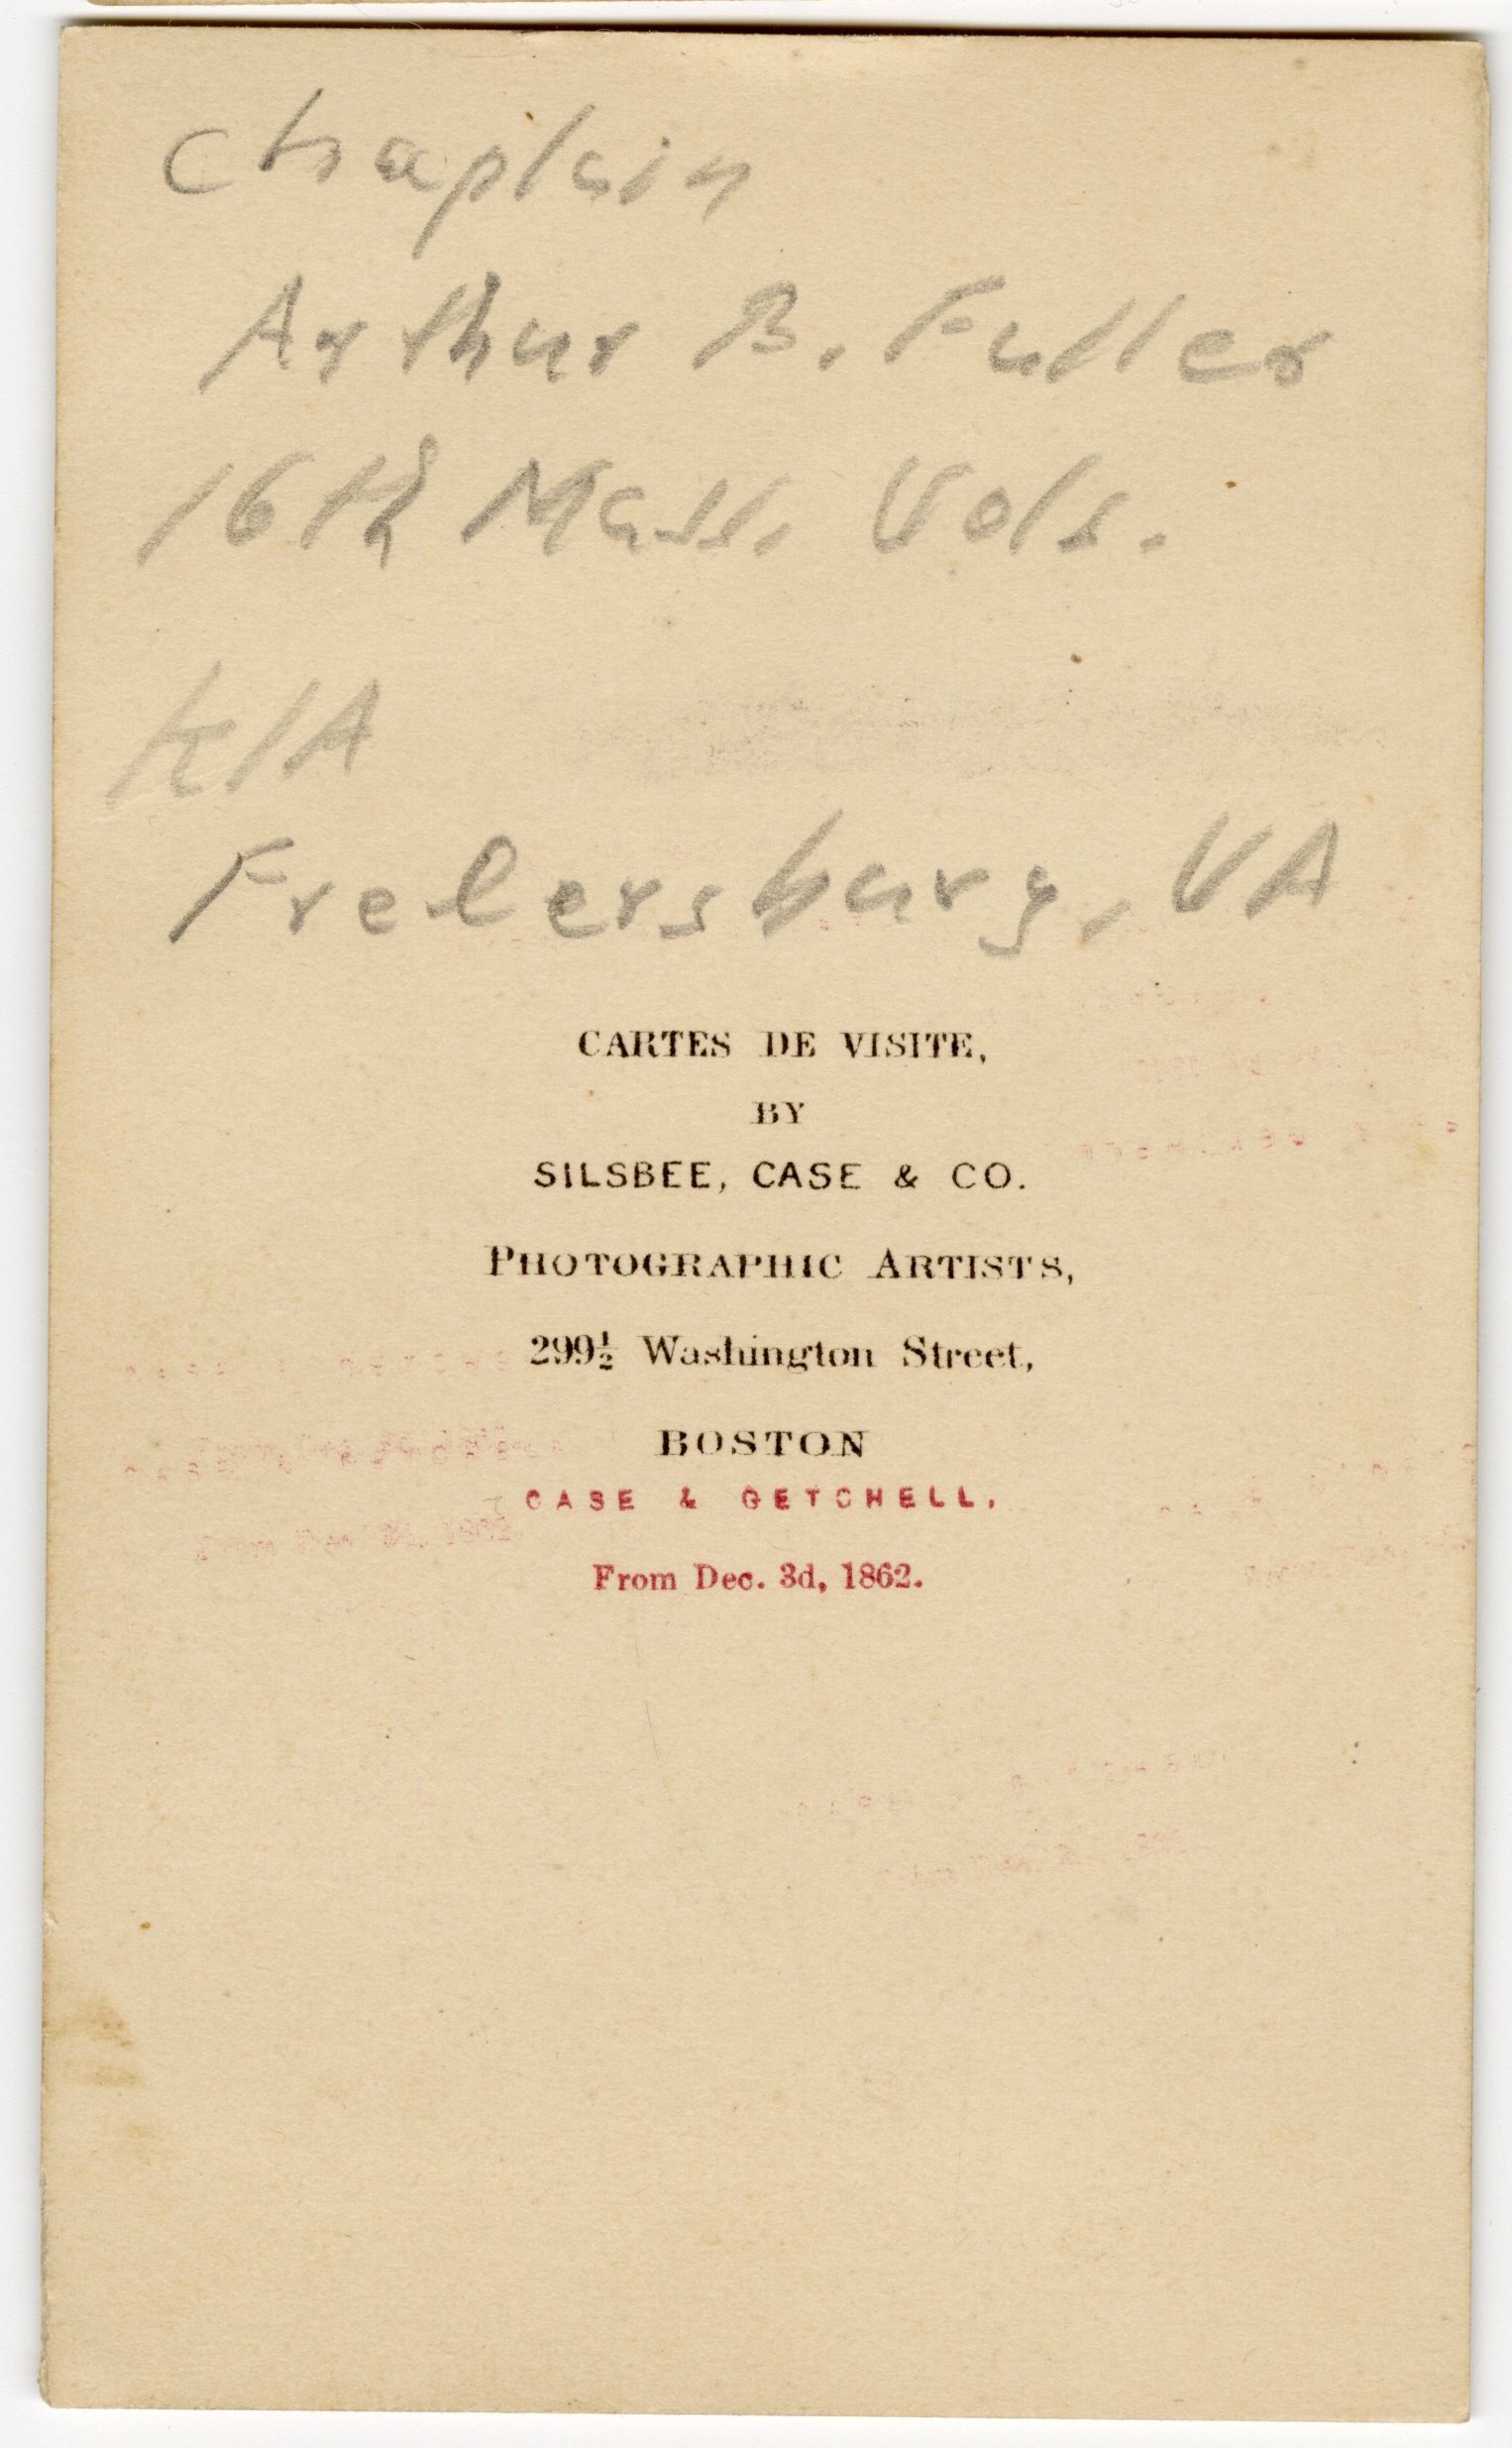 Chaplain
Arthur B. Fuller
16th Mass. Vols.
KIA
Fredersburg, VA
CARTES DE VISITE,
BY
SILSBEE, CASE & CO.
PHOTOGRAPHIC ARTISTS,
299½ Washington Street,
BOSTON
CASE & GETCHELL,
From Dec. 3d, 1862.